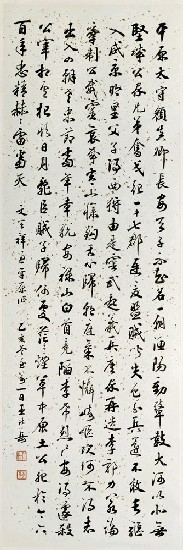 平原太守顏真卿長安天子不知名一朝漁陽動鼙鼓大河以北無
堅城公家兄弟奮戈起一十七郡連夏盟賊聞失色分兵還不敢長驅
入咸京明皇父子將西狩由是靈武起義兵唐家再造李郭力若論
牽制公威靈哀哉常山慘鉤舌心歸朝廷氣不懾崎嶇坎坷不得志
出入四朝老忠節當年幸脫安祿山白首竟陷李希烈希烈安能遽殺
公宰相盧杞欺日月亂臣賊子歸何處茫茫煙草中原土公死於今六
百年忠精赫赫雷當天
文天祥過平原作
乙亥冬一日王